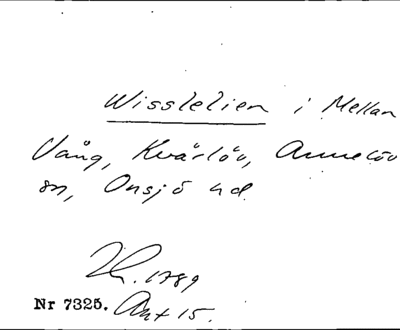 Wisslelien i Mellan
Vång, Kvärlöv, Annelöv
sn, Onsjö hd
Lk. 1789
Nr 7325. Akt 15.